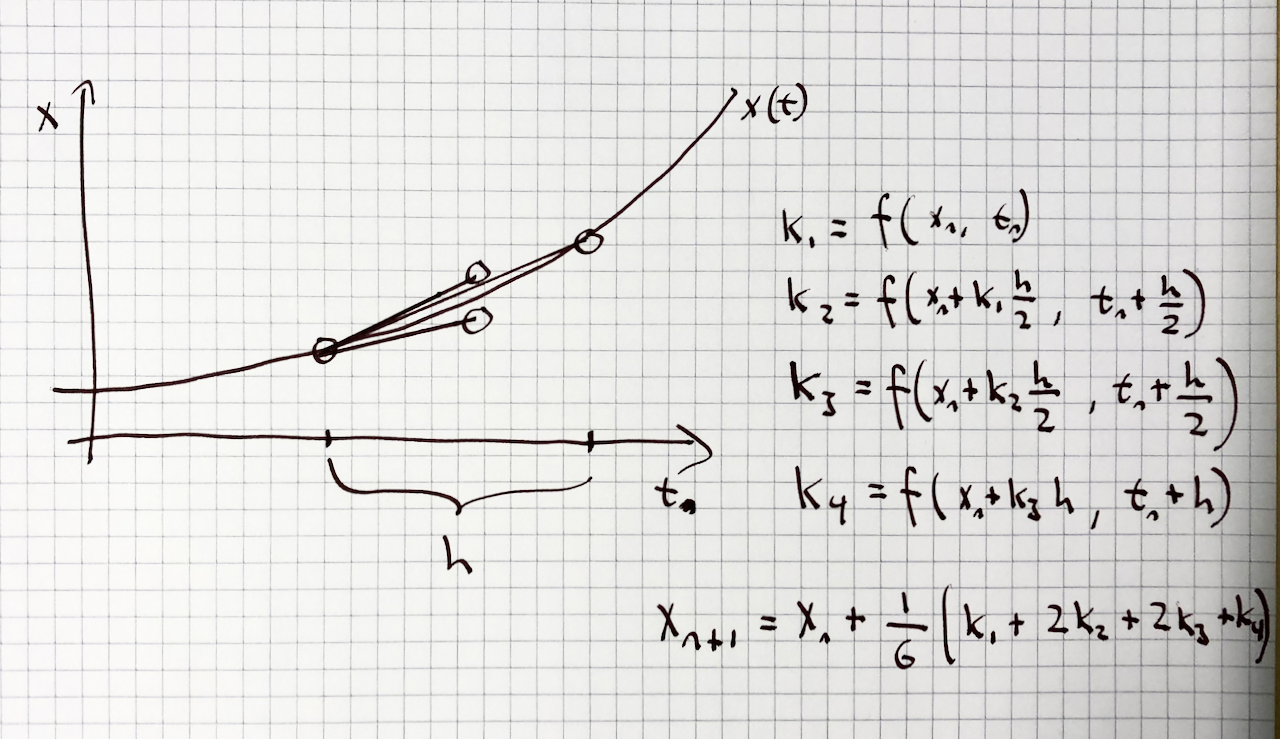 x
x(t)
k₁ = f(xₙ, tₙ)
k₂ = f(xₙ + k₁ h/2, tₙ + h/2)
k₃ = f(xₙ + k₂ h/2, tₙ + h/2)
tₙ
k₄ = f(xₙ + k₃ h, tₙ + h)
h
xₙ₊₁ = xₙ + 1/6 (k₁ + 2k₂ + 2k₃ + k₄)